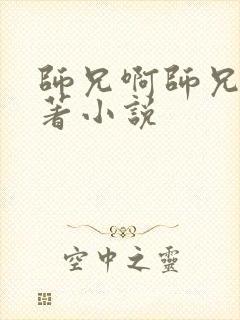 師兄啊師兄
著小説
空中之靈